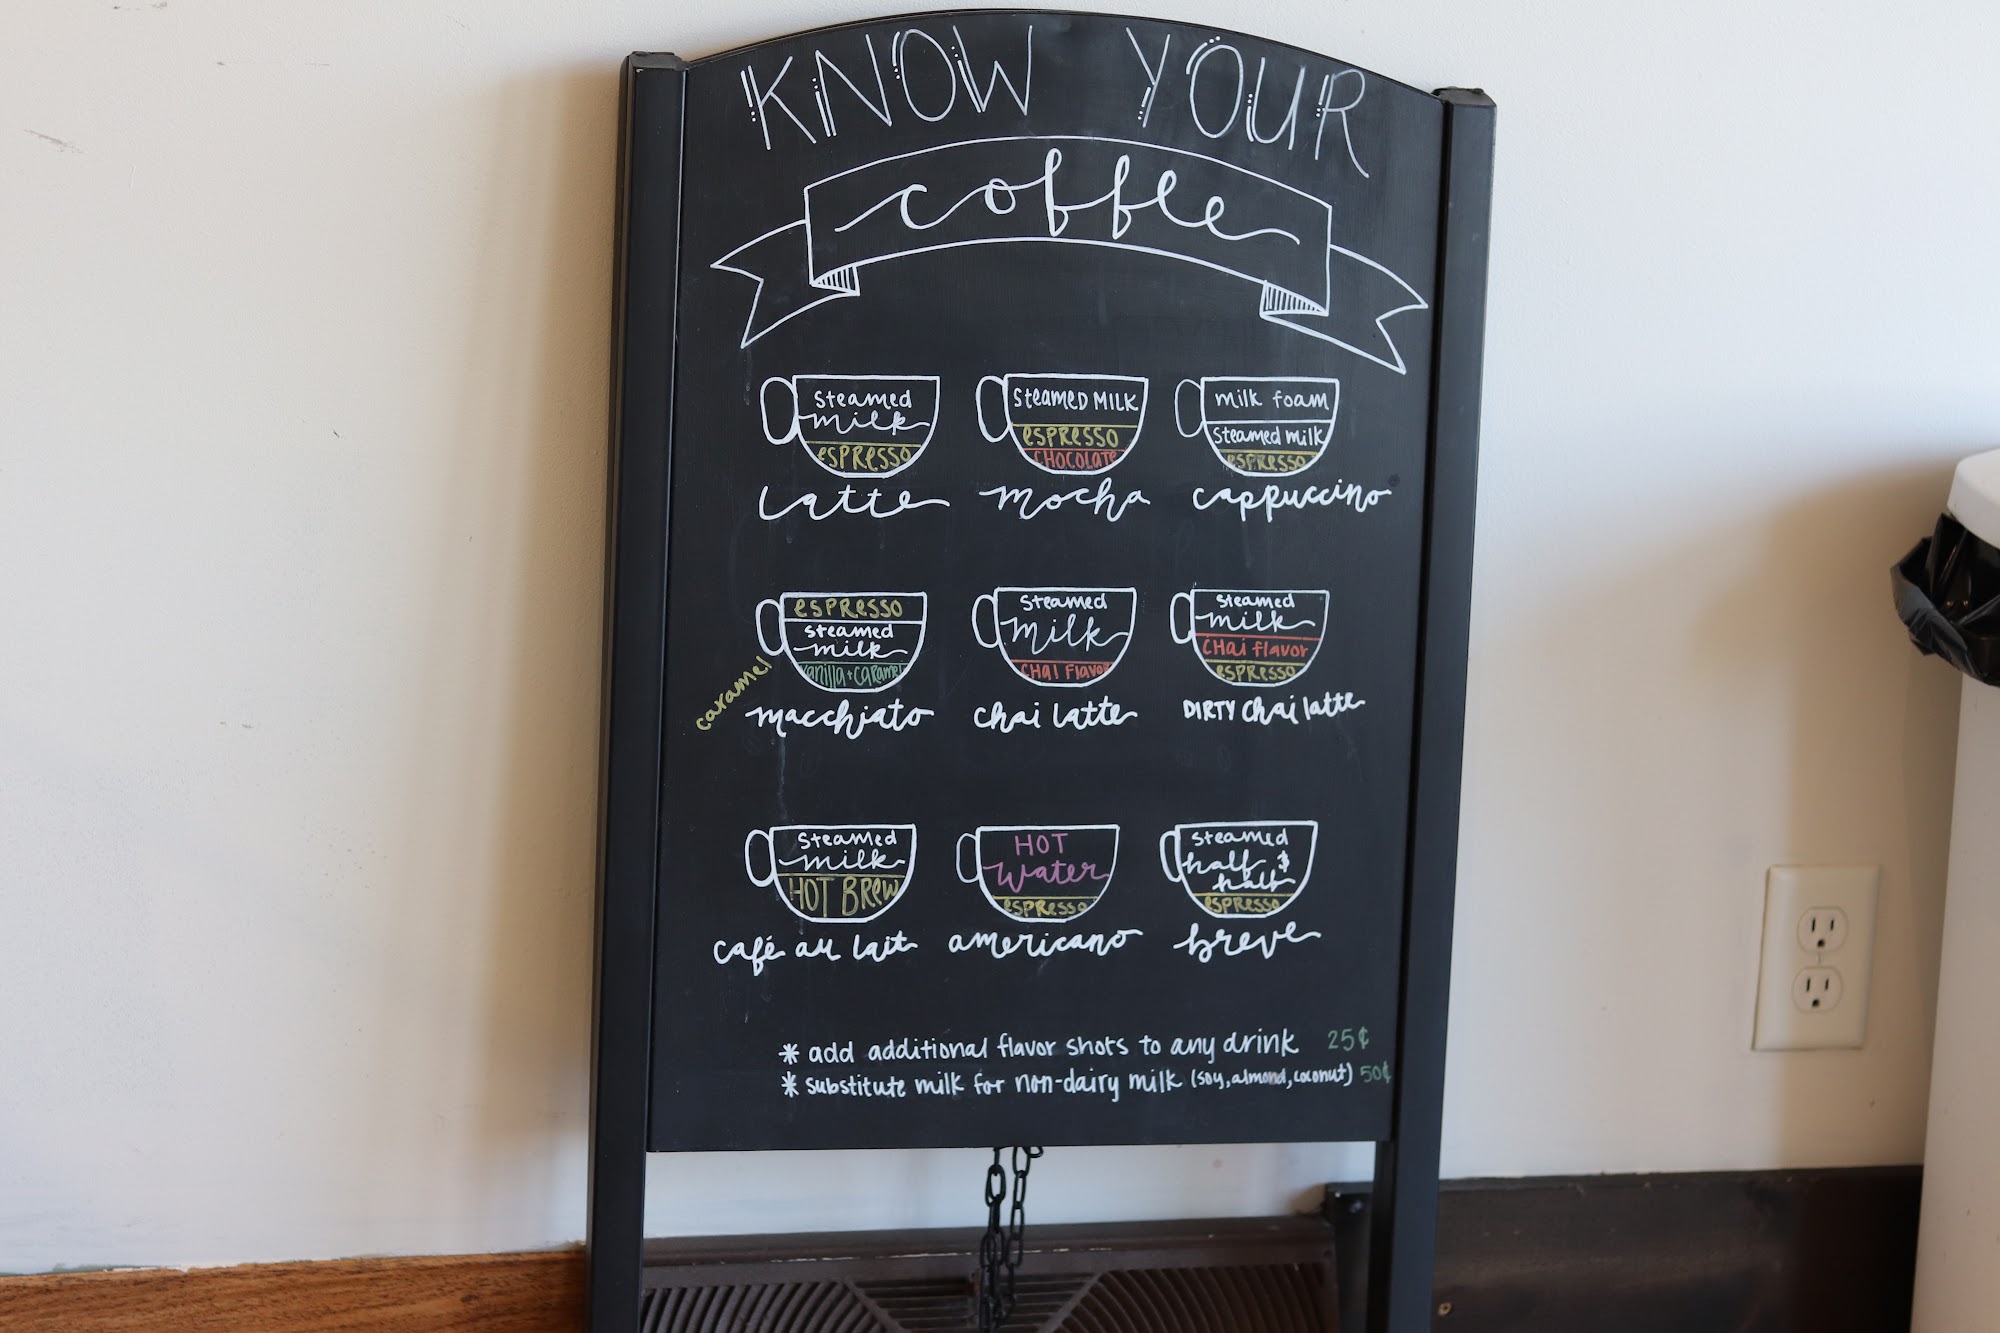 KNOW YOUR
coffee
steamed
milk
espresso
latte
steamed milk
espresso
chocolate
mocha
milk foam
steamed milk
espresso
cappuccino
espresso
steamed
milk
vanilla + caramel
caramel
macchiato
steamed
milk
chai flavor
chai latte
steamed
milk
chai flavor
espresso
DIRTY chai latte
steamed
milk
HOT BREW
café au lait
HOT
water
espresso
americano
steamed
half &
half
espresso
breve
* add additional flavor shots to any drink 25¢
* substitute milk for non-dairy milk (soy, almond, coconut) 50¢